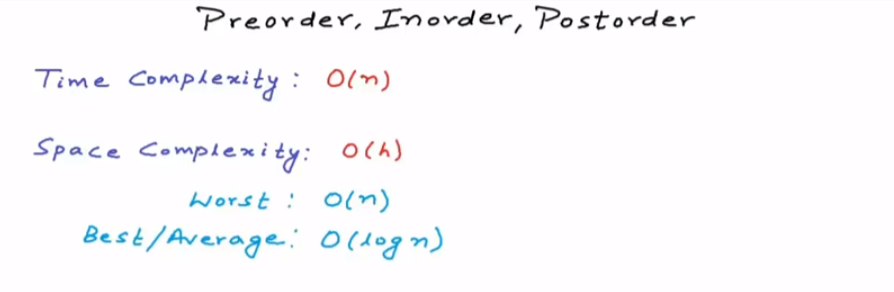 Preorder, Inorder, Postorder
Time Complexity: O(n)
Space Complexity: O(h)
Worst: O(n)
Best/Average: O(log n)